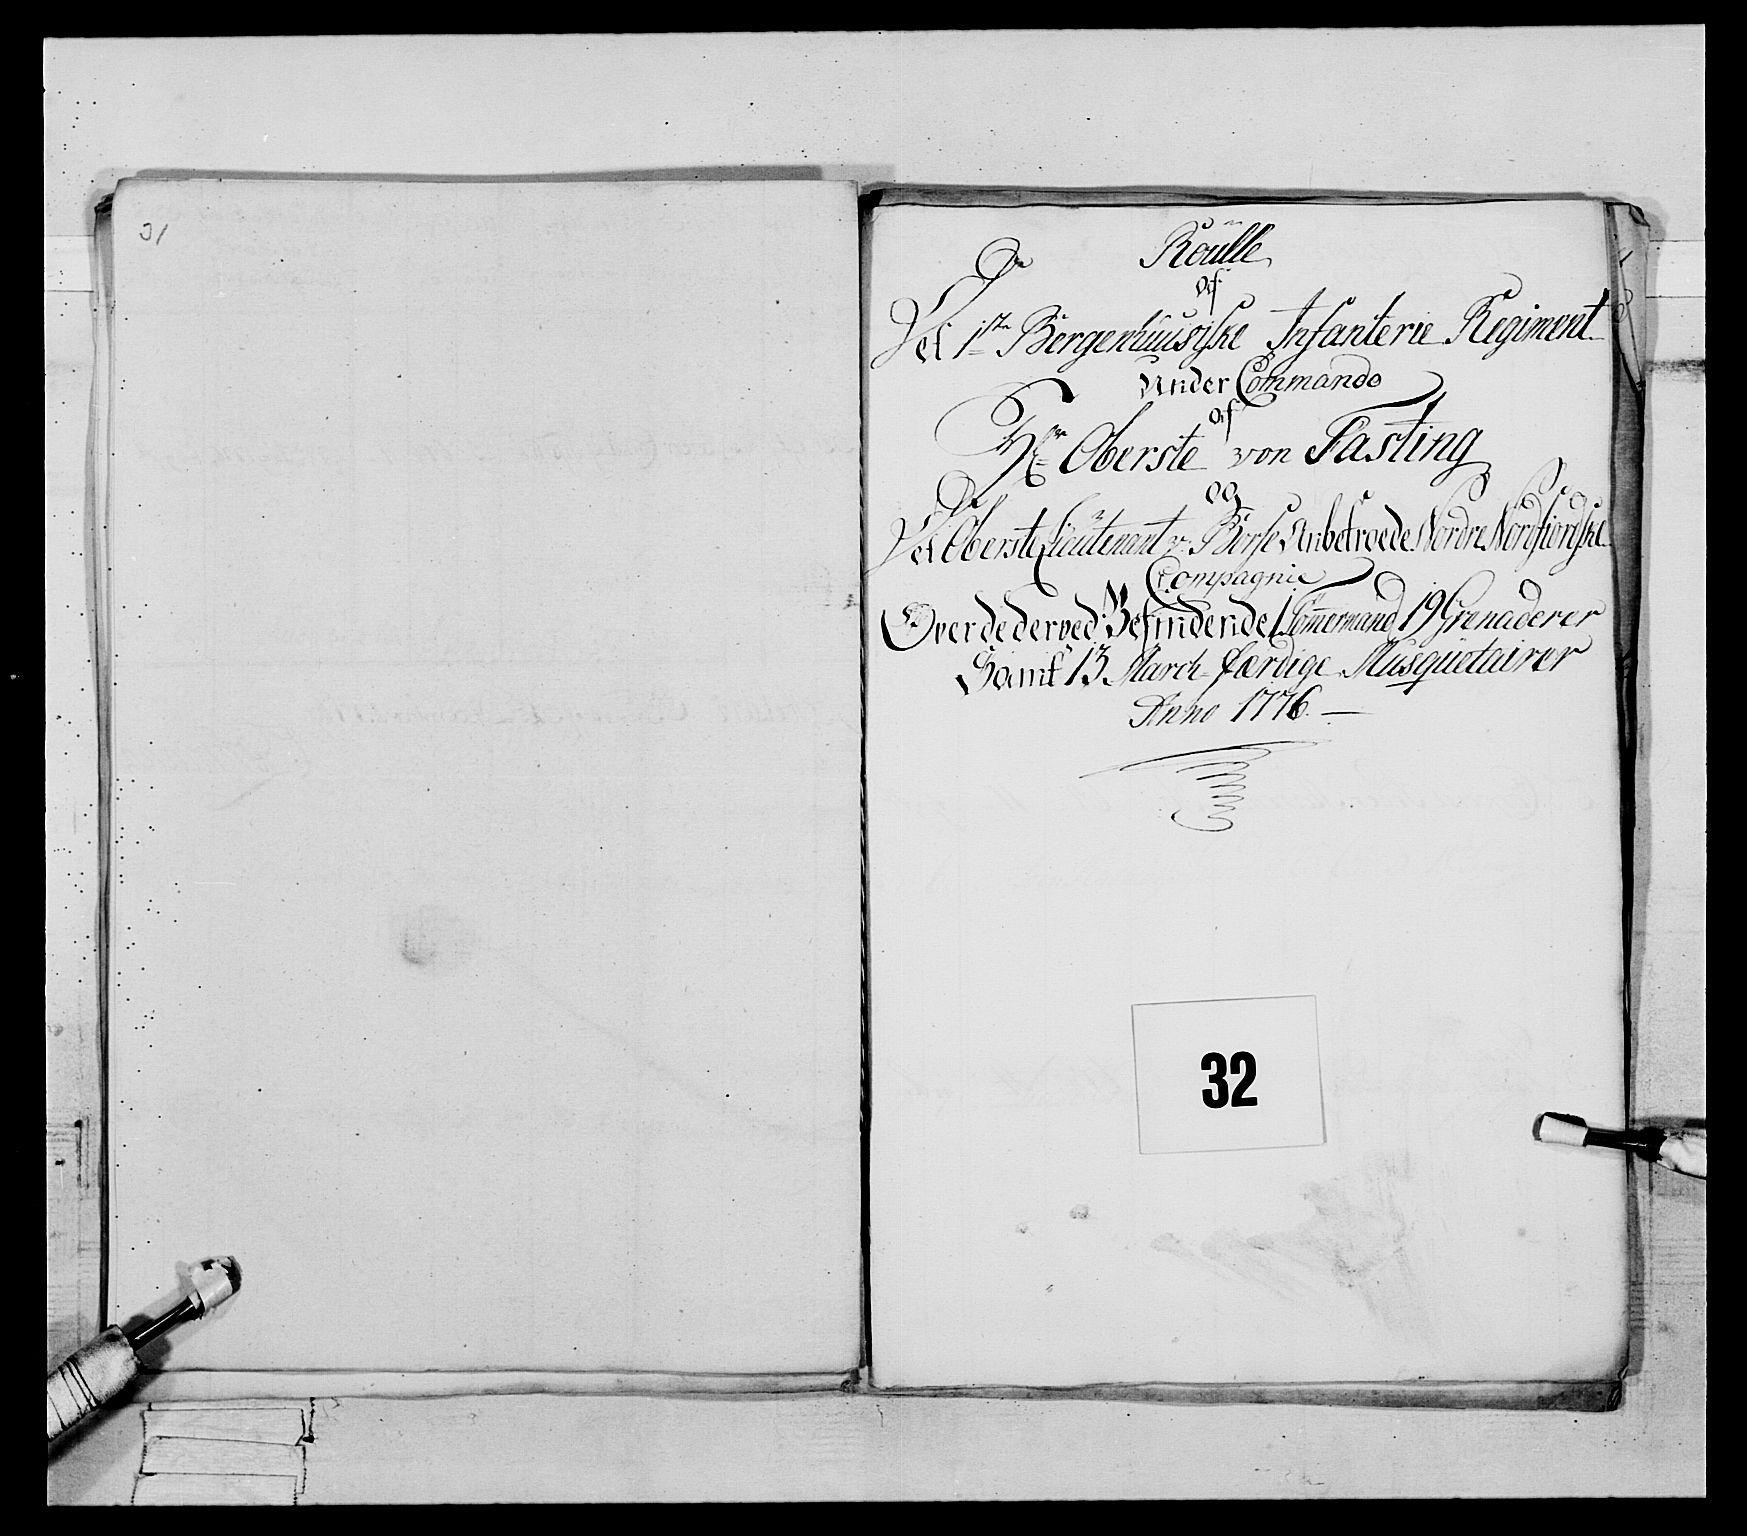 31
Roülle
af
Det 1ste Bergenhuusiske Infanterie Regiment
Under Commando
af
Hr Oberste von Fasting
og
Det Oberste Lieütenant v. Börse Anbetroede Nordre Nordfiordske
Compagnie
Over de derved Befindende 1 Tömmermand 19 Grenaderer
Samt 13 March-færdige Musqüetairer
Anno 1776.
32